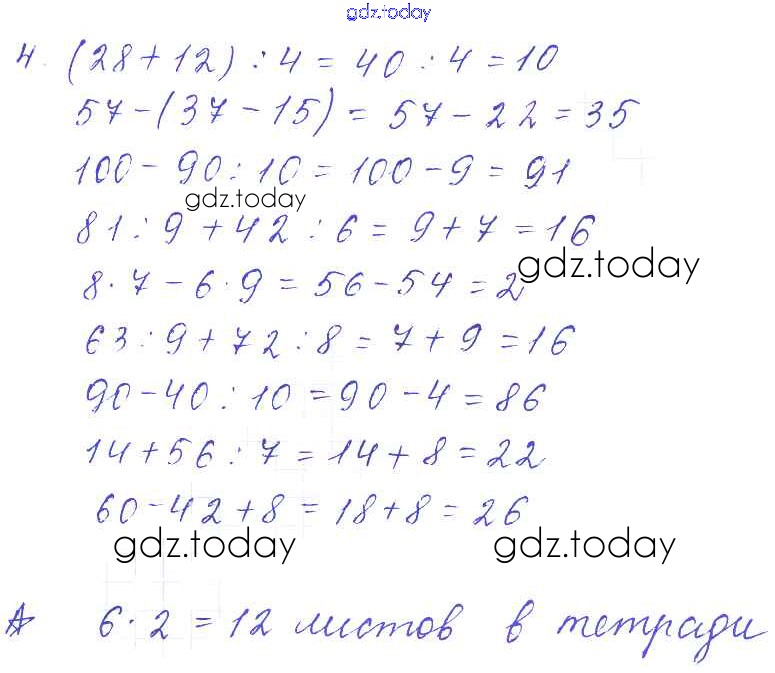 gdz.today
4. (28+12) : 4 = 40 : 4 = 10
57-(37-15) = 57-22 = 35
100-90:10 = 100-9 = 91
gdz.today
81:9+42:6 = 9+7 = 16
gdz.today
8·7-6·9 = 56-54 = 2
63:9+72:8 = 7+9 = 16
90-40:10 = 90-4 = 86
14+56:7 = 14+8 = 22
60-42+8 = 18+8 = 26
gdz.today gdz.today
6·2 = 12 листов в тетради